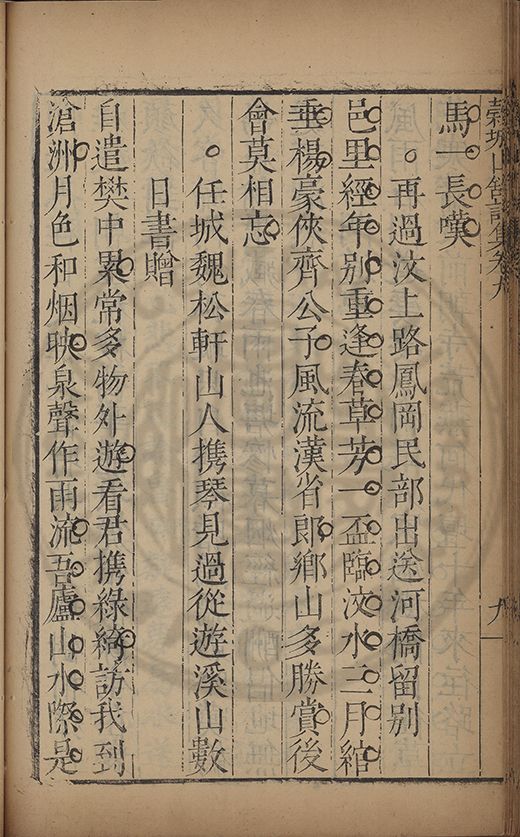 馬一長嘆
再過汶上路鳳岡民部出送河橋留別
邑里經年别重逢春草芳一盃臨汶水二月綰
垂楊豪俠齊公子風流漢省郎鄉山多勝賞後
會莫相忘
任城魏松軒山人携琴見過從遊溪山數
日書贈
自遣樊中累常多物外遊看君携綠綺訪我到
滄洲月色和烟映泉聲作雨流吾廬山水際是